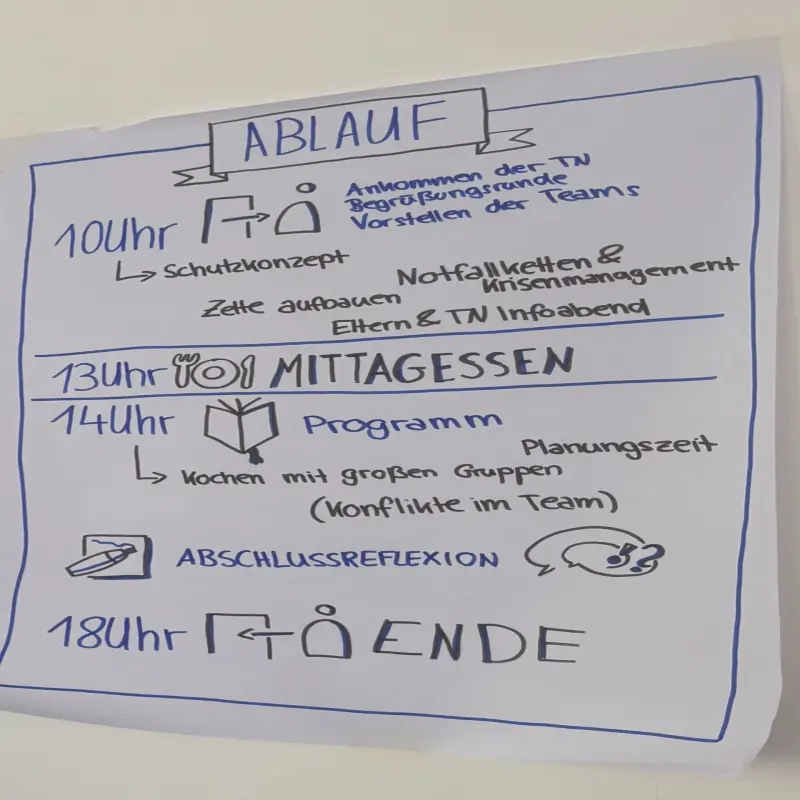 ABLAUF
Ankommen der TN
Begrüßungsrunde
10Uhr Vorstellen der Teams
Schutzkonzept
Notfallketten &
Krisenmanagement
Zelte aufbauen
Eltern & TN Infoabend
13Uhr MITTAGESSEN
14Uhr Programm
Planungszeit
Kochen mit großen Gruppen
(Konflikte im Team)
ABSCHLUSSREFLEXION !?
18Uhr ENDE